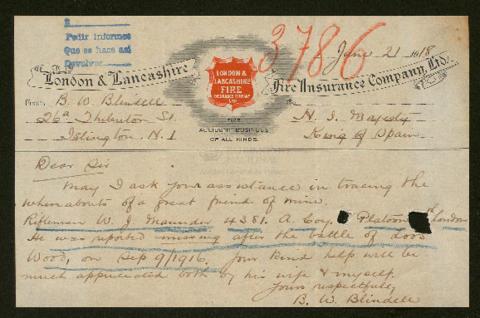 Pedir informes
Que se hace asi
Devolver
3786
June 21 1918
London & Lancashire
LONDON &
LANCASHIRE
FIRE
INSURANCE COMPANY
LTD
Fire Insurance Company, Ltd.
FIRE
ACCIDENT BUSINESS
OF ALL KINDS.
From B. W. Blindell
26a Theberton St.
Islington. N. 1
H. I. Majesty
King of Spain
Dear Sir
May I ask your assistance in tracing the
whereabouts of a great friend of mine.
Rifleman W. J. Maunder 4351. A. Coy. Platoon London
He was reported missing after the battle of
Wood, on Sep 9/1916. Your kind help will be
much appreciated both by his wife & myself.
Yours respectfully,
B. W. Blindell